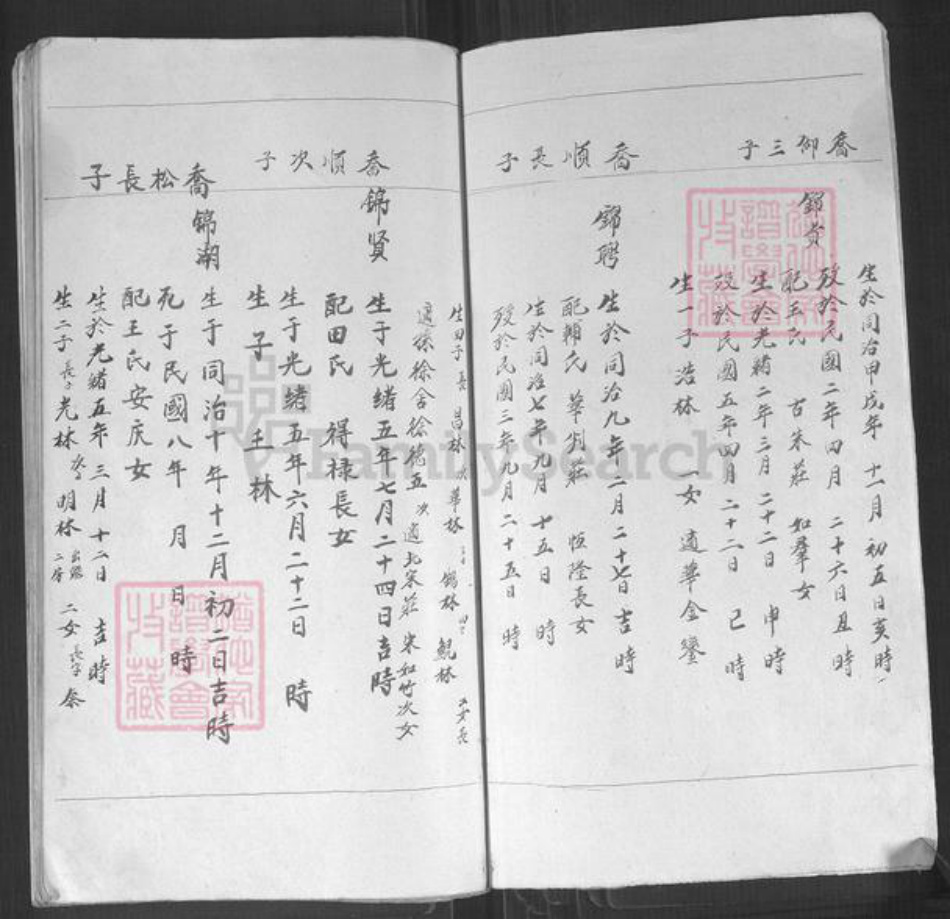 喬仰三子
錦貴
生於同治甲戌年 十一月 初五日亥時
歿於民國二年四月 二十六日丑時
配王氏 古朱莊 如羣女
生於光緒二年三月二十二日 申時
歿於民國五年四月二十二日 巳時
生一子浩林 一女 適華金鑾
喬順長子
錦聘
生於同治九年二月二十七日吉時
配賴氏 華尖莊 恒隆長女
生於同治七年九月 十五日 時
歿於民國三年九月二十五日 時
生四子長昌林 次華林 錫林 鯤林 二女長
適孫徐舍徐德五 次適北宋莊 宋如竹次女
喬順次子
錦賢
生于光緒五年七月二十四日吉時
配田氏 得禄長女
生于光緒五年六月二十二日 時
生子玉林
喬松長子
錦湖
生于同治十年十二月初二日吉時
死于民國八年 月 日 時
配王氏安庆女
生於光緒五年三月十二日 吉時
生二子長子光林 次子明林 出嗣二房 二女長子秦
FamilySearch